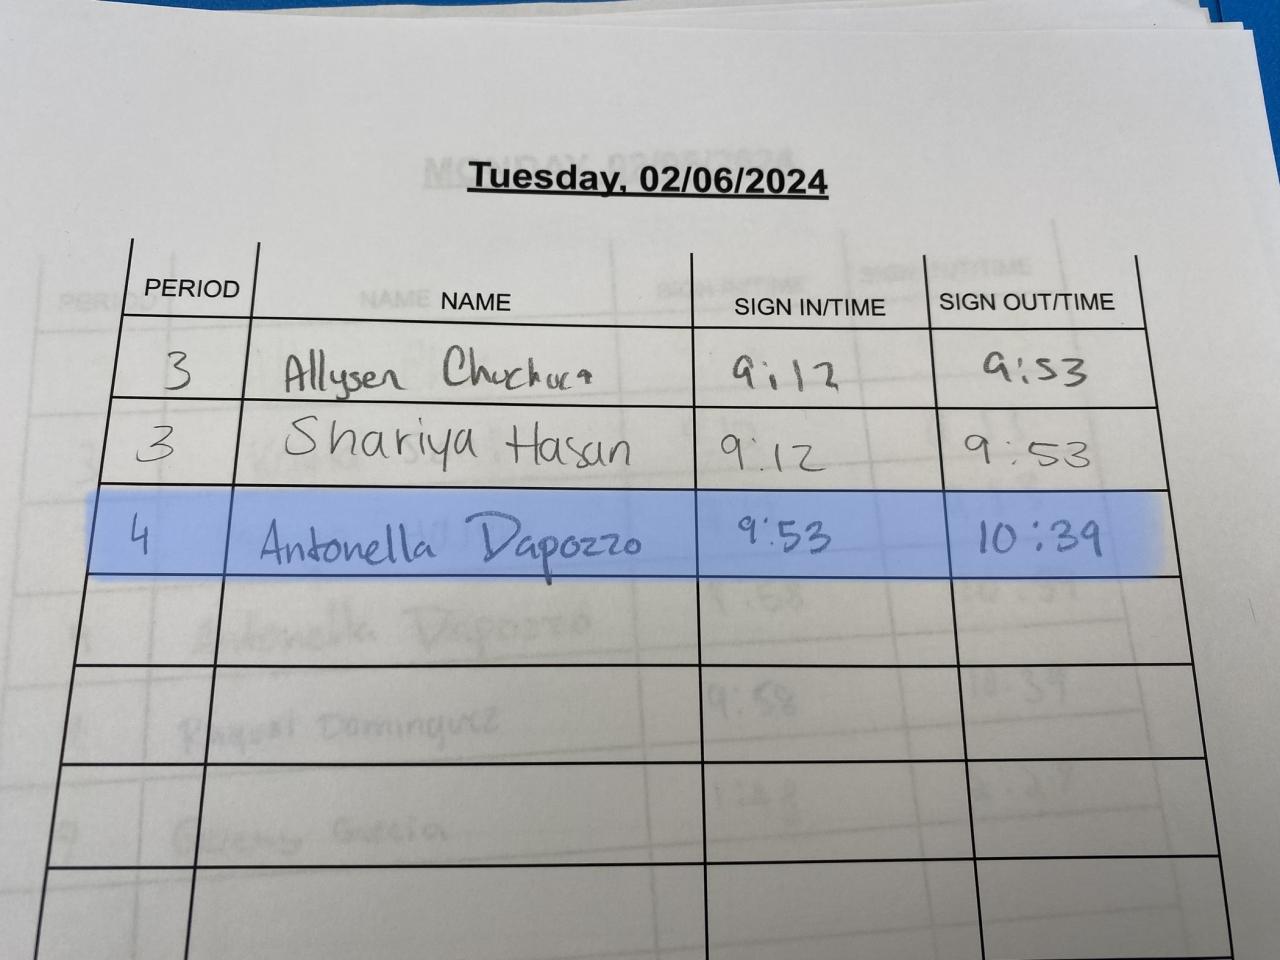 Tuesday, 02/06/2024
PERIOD NAME SIGN IN/TIME SIGN OUT/TIME
3 Allysen Chuchuca 9:12 9:53
3 Shariya Hasan 9:12 9:53
4 Antonella Dapozzo 9:53 10:39